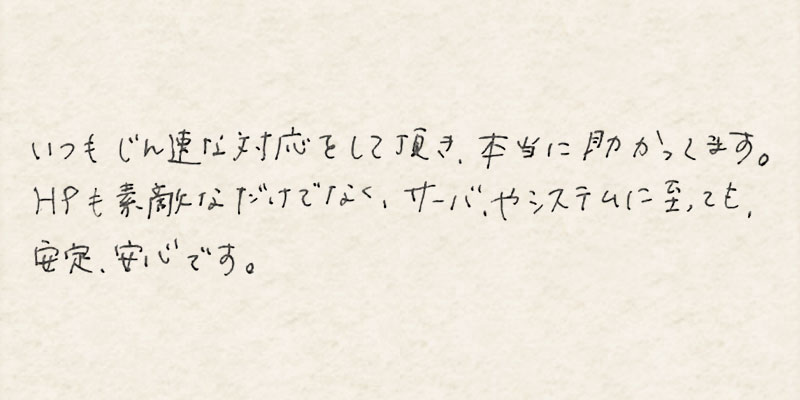 いつもじん速な対応をして頂き、本当に助かってます。
HPも素敵なだけでなく、サーバ、やシステムに至っても、
安定、安心です。